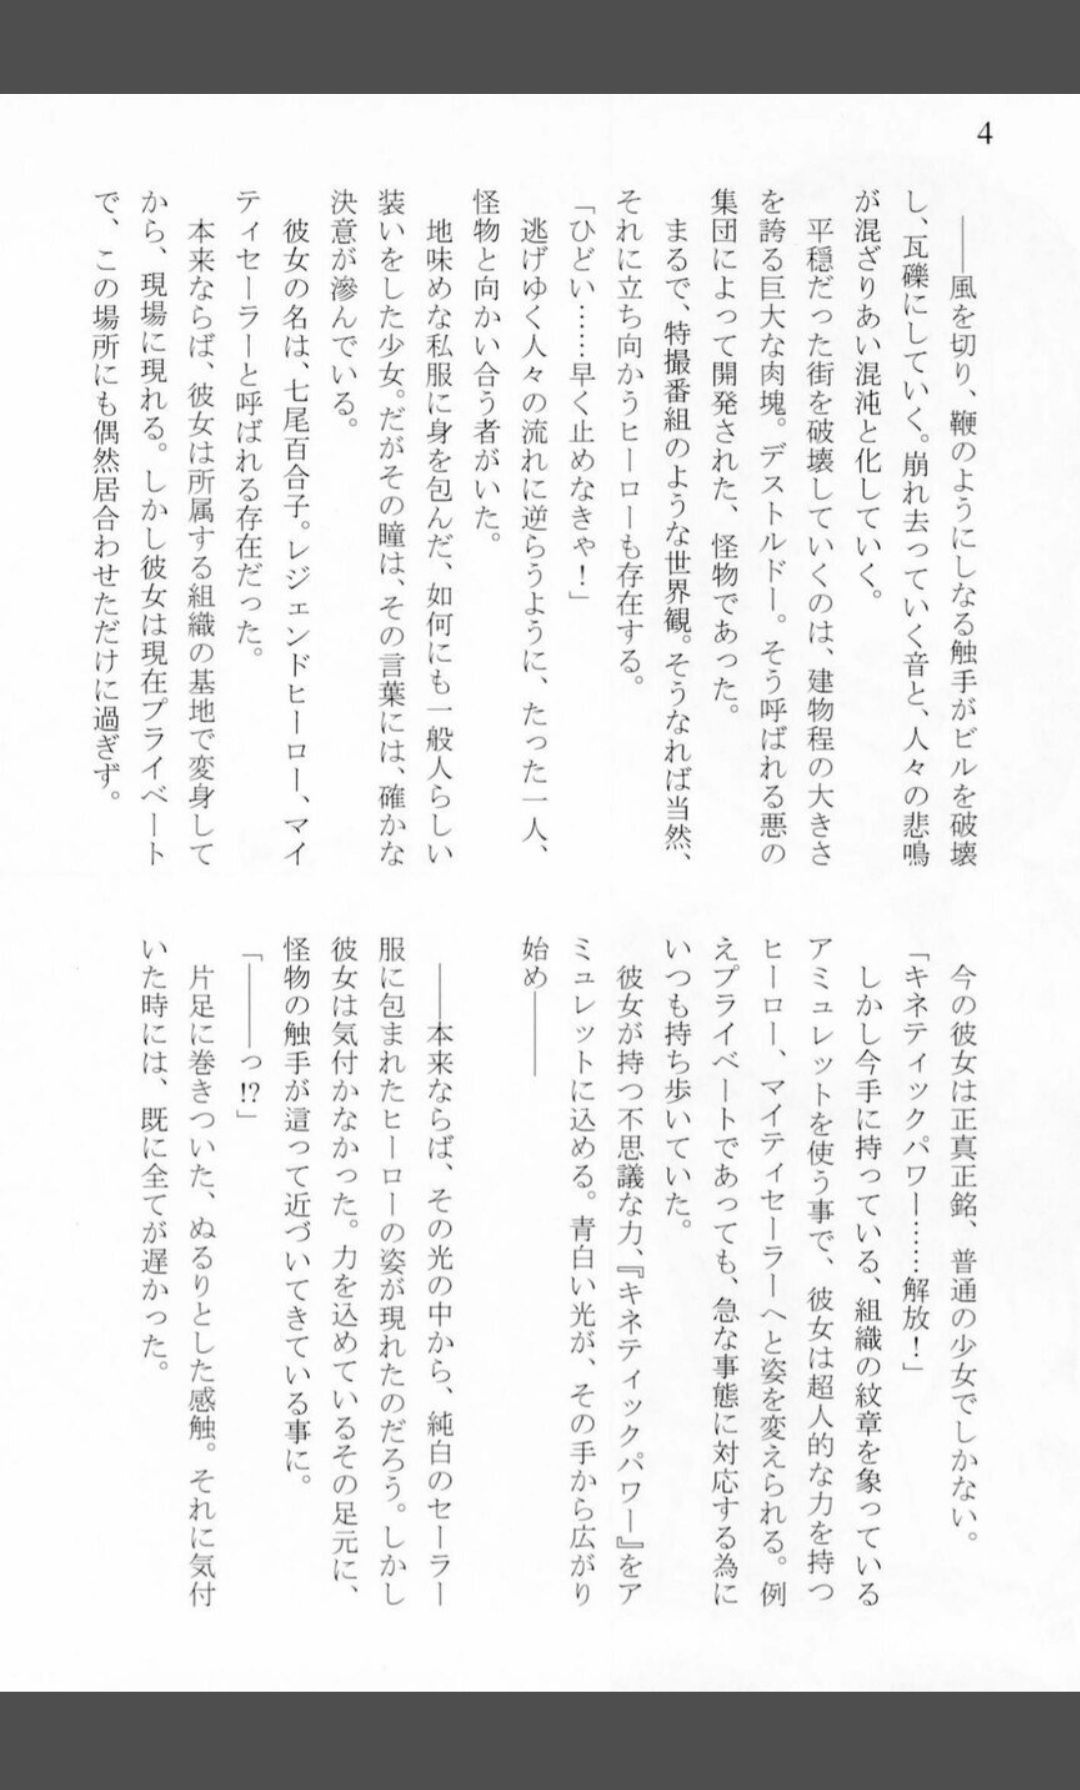 4
――風を切り、鞭のようにしなる触手がビルを破壊
し、瓦礫にしていく。崩れ去っていく音と、人々の悲鳴
が混ざりあい混沌と化していく。
平穏だった街を破壊していくのは、建物程の大きさ
を誇る巨大な肉塊。デストルドー。そう呼ばれる悪の
集団によって開発された、怪物であった。
まるで、特撮番組のような世界観。そうなれば当然、
それに立ち向かうヒーローも存在する。
「ひどい……早く止めなきゃ！」
逃げゆく人々の流れに逆らうように、たった一人、
怪物と向かい合う者がいた。
地味めな私服に身を包んだ、如何にも一般人らしい
装いをした少女。だがその瞳は、その言葉には、確かな
決意が滲んでいる。
彼女の名は、七尾百合子。レジェンドヒーロー、マイ
ティセーラーと呼ばれる存在だった。
本来ならば、彼女は所属する組織の基地で変身して
から、現場に現れる。しかし彼女は現在プライベート
で、この場所にも偶然居合わせただけに過ぎず。
今の彼女は正真正銘、普通の少女でしかない。
「キネティックパワー……解放！」
しかし今手に持っている、組織の紋章を象っている
アミュレットを使う事で、彼女は超人的な力を持つ
ヒーロー、マイティセーラーへと姿を変えられる。例
えプライベートであっても、急な事態に対応する為に
いつも持ち歩いていた。
彼女が持つ不思議な力、『キネティックパワー』をア
ミュレットに込める。青白い光が、その手から広がり
始め――――
――本来ならば、その光の中から、純白のセーラー
服に包まれたヒーローの姿が現れたのだろう。しかし
彼女は気付かなかった。力を込めているその足元に、
怪物の触手が這って近づいてきている事に。
「―――っ!?」
片足に巻きついた、ぬるりとした感触。それに気付
いた時には、既に全てが遅かった。